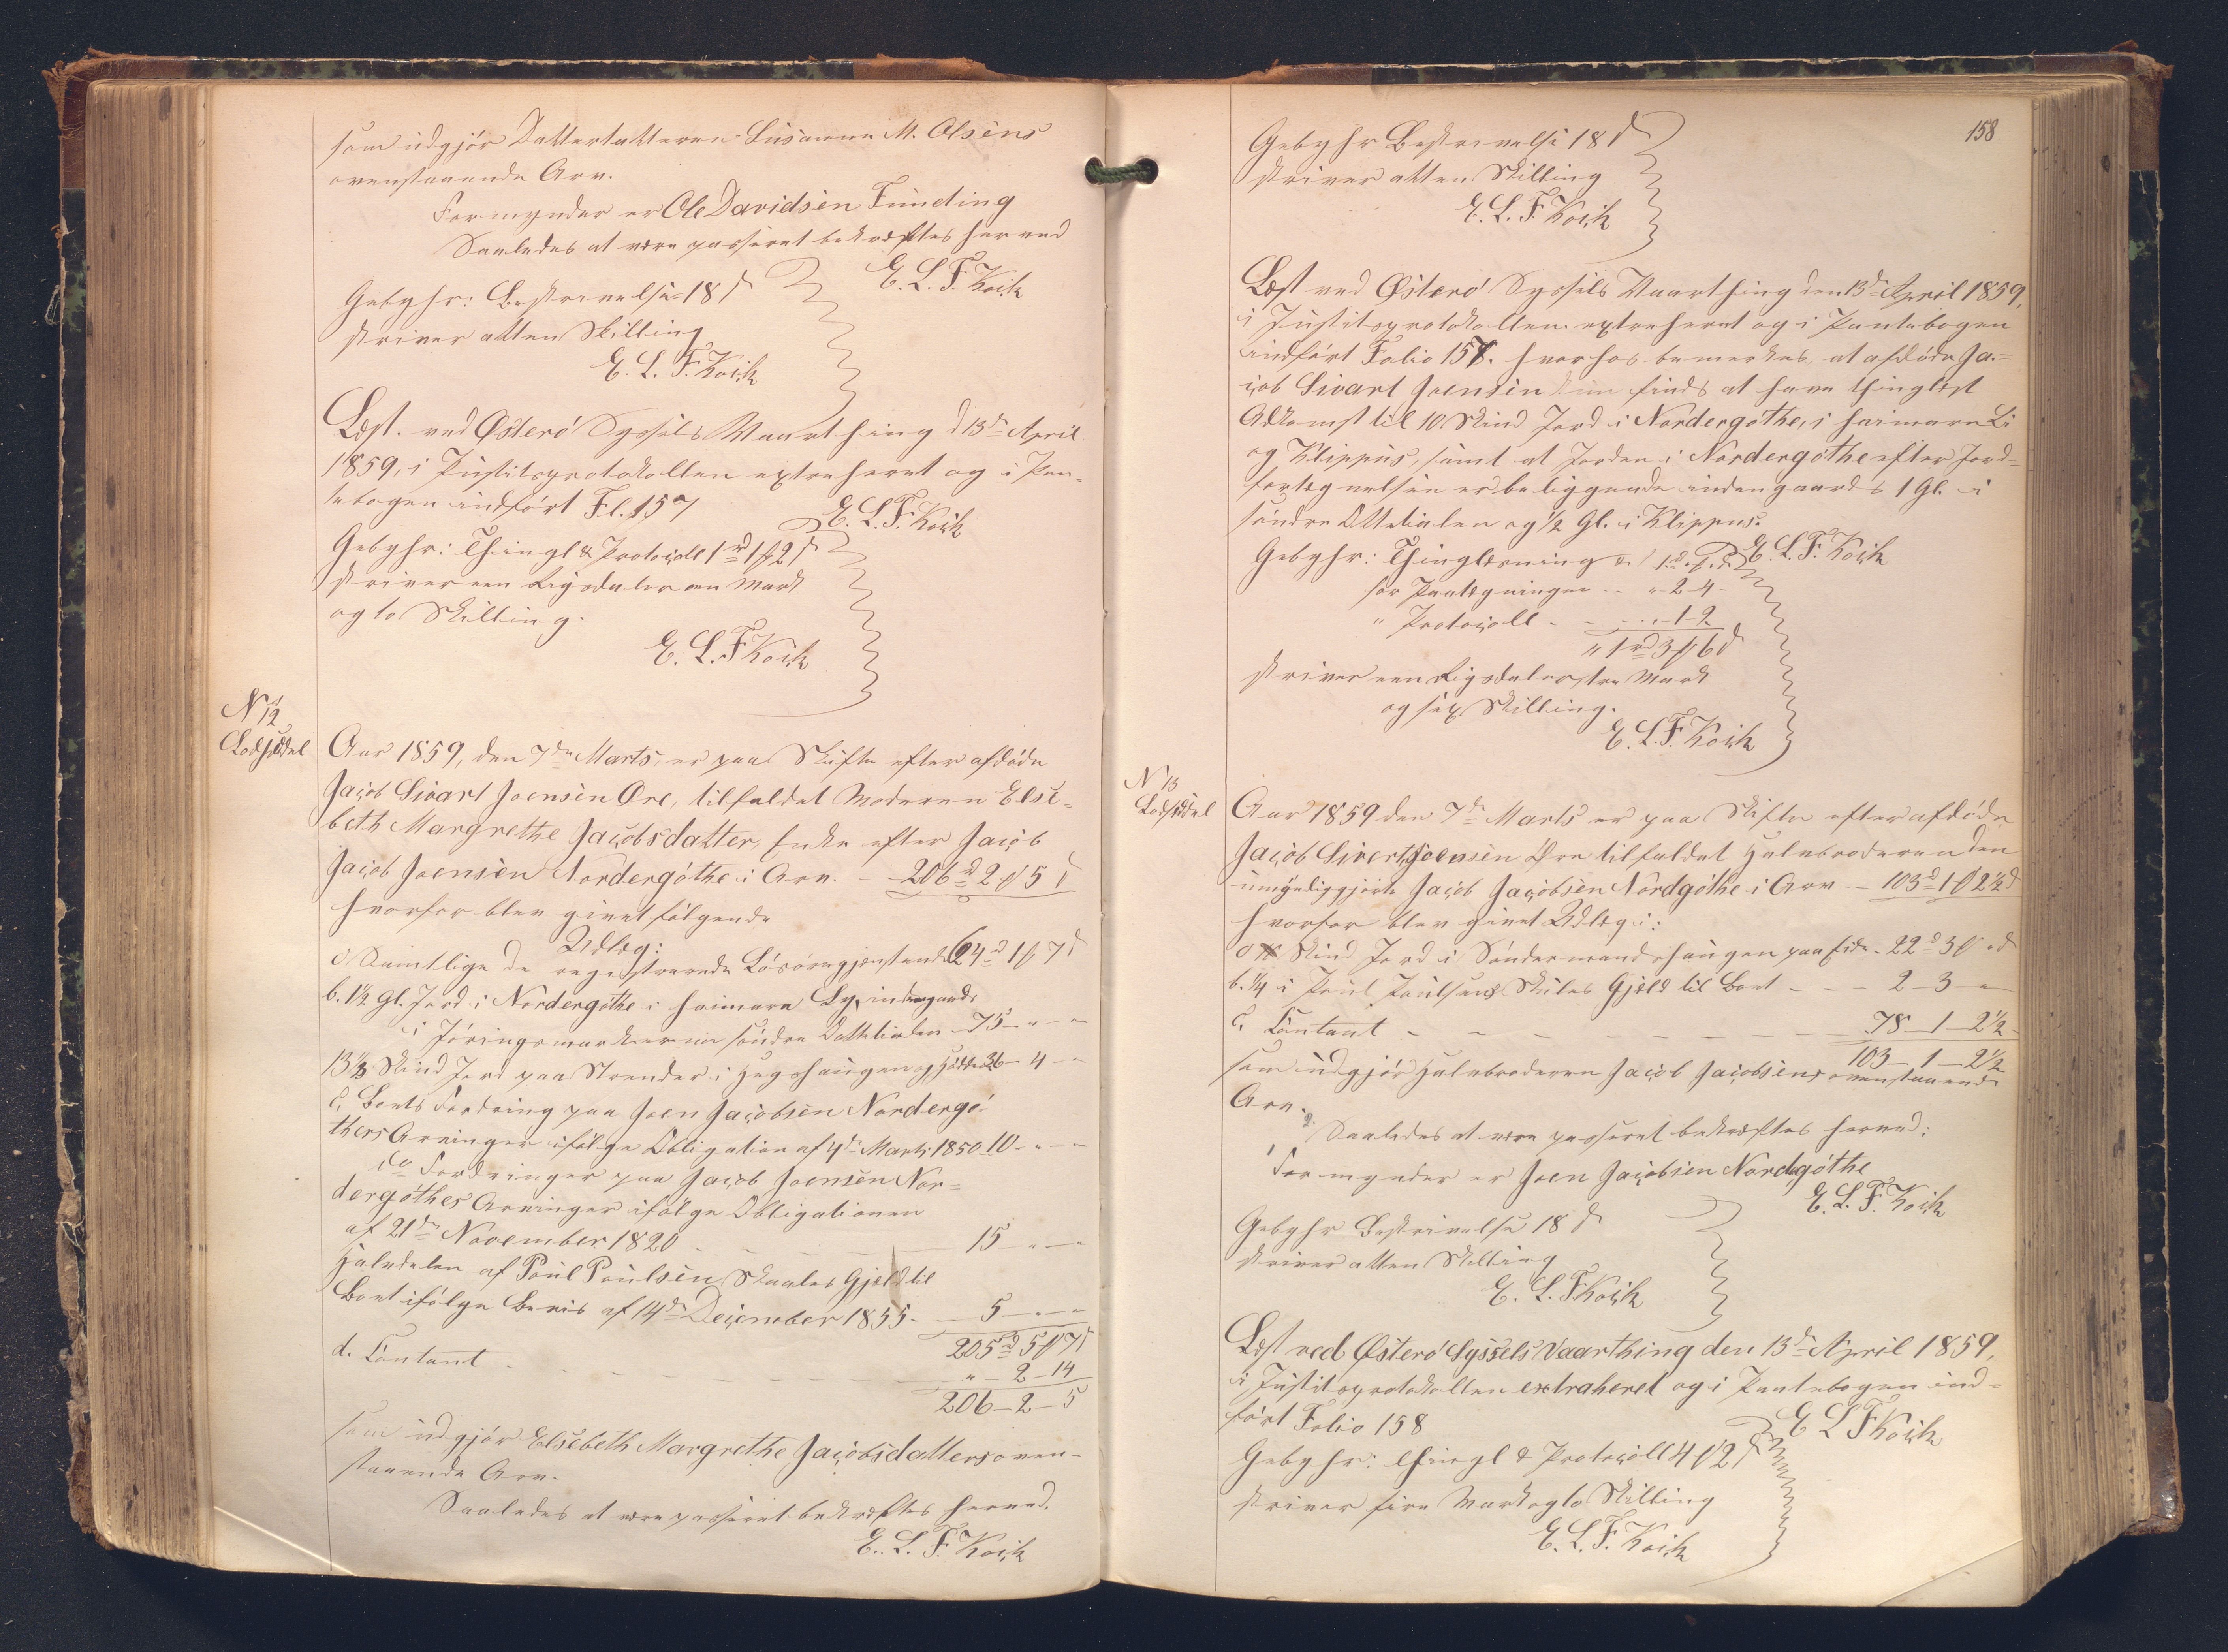 som udgjör Datterdatteren Susanna M. Olsens
ovenstaaende Arv.
Formynder er Ole Davidsen Funding
Saaledes at være passeret bekræftes herved
E. L. F. Koch
Gebyhr: Beskrivelse 18 ſ
skriver atten Skilling
E. L. F. Koch
Læst ved Österö Syssels Vaarthing d 13de April
1859, i Justitsprotokollen extraheret og i Pan-
tebogen indfört Fl. 157
E. L. F. Koch
Gebyhr: Thingl & Protocoll 1 rd 1 ℳ 2 ſ
skriver een Rigsdaler een Mark
og to Skilling.
E. L. F. Koch
N 12
Lodseddel
Aar 1859, den 7de Marts, er paa Skifte efter afdöde
Jacob Sivart Joensen Öre, tilfaldet Moderen Else-
beth Margrethe Jacobsdatter, Enke efter Jacob
Jacob Joensen Nordergöthe i Arv. - 206 rd 2 ℳ 5 ſ
hvorfor blev givet fölgende
Udlæg:
a) Samtlige de registrerede Lösöregjenstande 64 rd 1 ℳ 7 ſ
b. 1½ Gl. Jord i Nordergöthe i heimare Ly, indengards
i Jöringsmarkerne söndre Oattelialen - 75 - " - "
13⅓ Skind Jord paa Strender i Hegshaugen og 36 - 4 - "
c, Boets Fordring paa Joen Jacobsen Nordergö-
thers Arvinger ifölge Obligation af 4de Marts 1850 10 - " - "
do Fordringer paa Jacob Joensen Nor-
dergöthes Arvinger ifölge Obligationen
af 21de November 1820 - - - 15 - " - "
Halvdelen af Poul Poulsen Skaales Gjeld til
Boet ifölge Beviis af 14de December 1855 - 5 - " - "
205 rd 5 ℳ 7 ſ
d. Contant - - - " - 2 - 14
206 - 2 - 5
som udgjör Elsebeth Margrethe Jacobsdatters oven-
staaende Arv.
Saaledes at være passeret bekræftes herved.
E. L. F. Koch
158
Gebyhr Beskrivelse 18 ſ
skriver atten Skilling
E. L. F. Koch
Læst ved Österö Syssels Vaarthing den 13de April 1859,
i Justitsprotokollen extraheret og i Pantebogen
indfört Folio 157. hvorhos bemerkes, at afdöde Ja-
cob Sivart Joensen kun findes at have thinglæst
Adkomst til 10 Skind Jord i Nordergöthe, i heimare Li
og Klippus, samt at Jorden i Nordergöthe efter Jord-
fortegnelsen er beliggende indengaards 1 Gl. i
söndre Ottelialen og ½ Gl. i Klippus.
E. L. F. Koch
Gebyhr: Thinglæsning 1 rd " ℳ " ſ
for Paategningen - " - 2 4 -
" Protocoll - - " - 1 2
" 1 rd 3 ℳ 6 ſ
skriver een Rigsdaler tre Mark
og sex Skilling.
E. L. F. Koch
N 13
Lodseddel
Aar 1859 den 7de Marts er paa Skifte efter afdöde
Jacob Sivert Joensen Öre tilfaldet Halvbroderen den
umyndiggjorte Jacob Jacobsen Nordgöthe i Arv - 103 rd 1 ℳ 2½ ſ
hvorfor blev givet Udlæg i:
a Skind Jord i Söndermandshaugen paa Eide - 22 rd 3 ℳ " ſ
b. ¼ i Poul Poulsens Skales Gjeld til Boet - - - 2 - 3 - "
c, Contant - - - 78 - 1 - 2½
103 - 1 - 2½
som udgjör Halvbroderen Jacob Jacobsens ovenstaaende
Arv.
Saaledes at være passeret bekræftes herved:
Formynder er Joen Jacobsen Nordegöthe
E. L. F. Koch
Gebyhr Beskrivelse 18 ſ
skriver atten Skilling
E. L. F Koch
Læst ved Österö Syssels Vaarthing den 13de April 1859,
i Justitsprotokollen extraheret og i Pantebogen ind-
fört Folio 158
E L F Koch
Gebyhr: Thingl & Protocoll 4 ℳ 2 ſ
skriver fire Mark og to Skilling
E. L. F. Koch